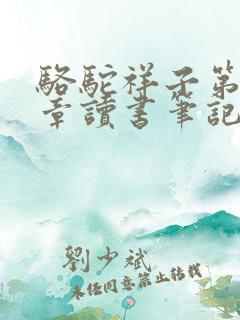 駱駝祥子第
章讀書筆記
劉少斌
未經同意禁止轉載